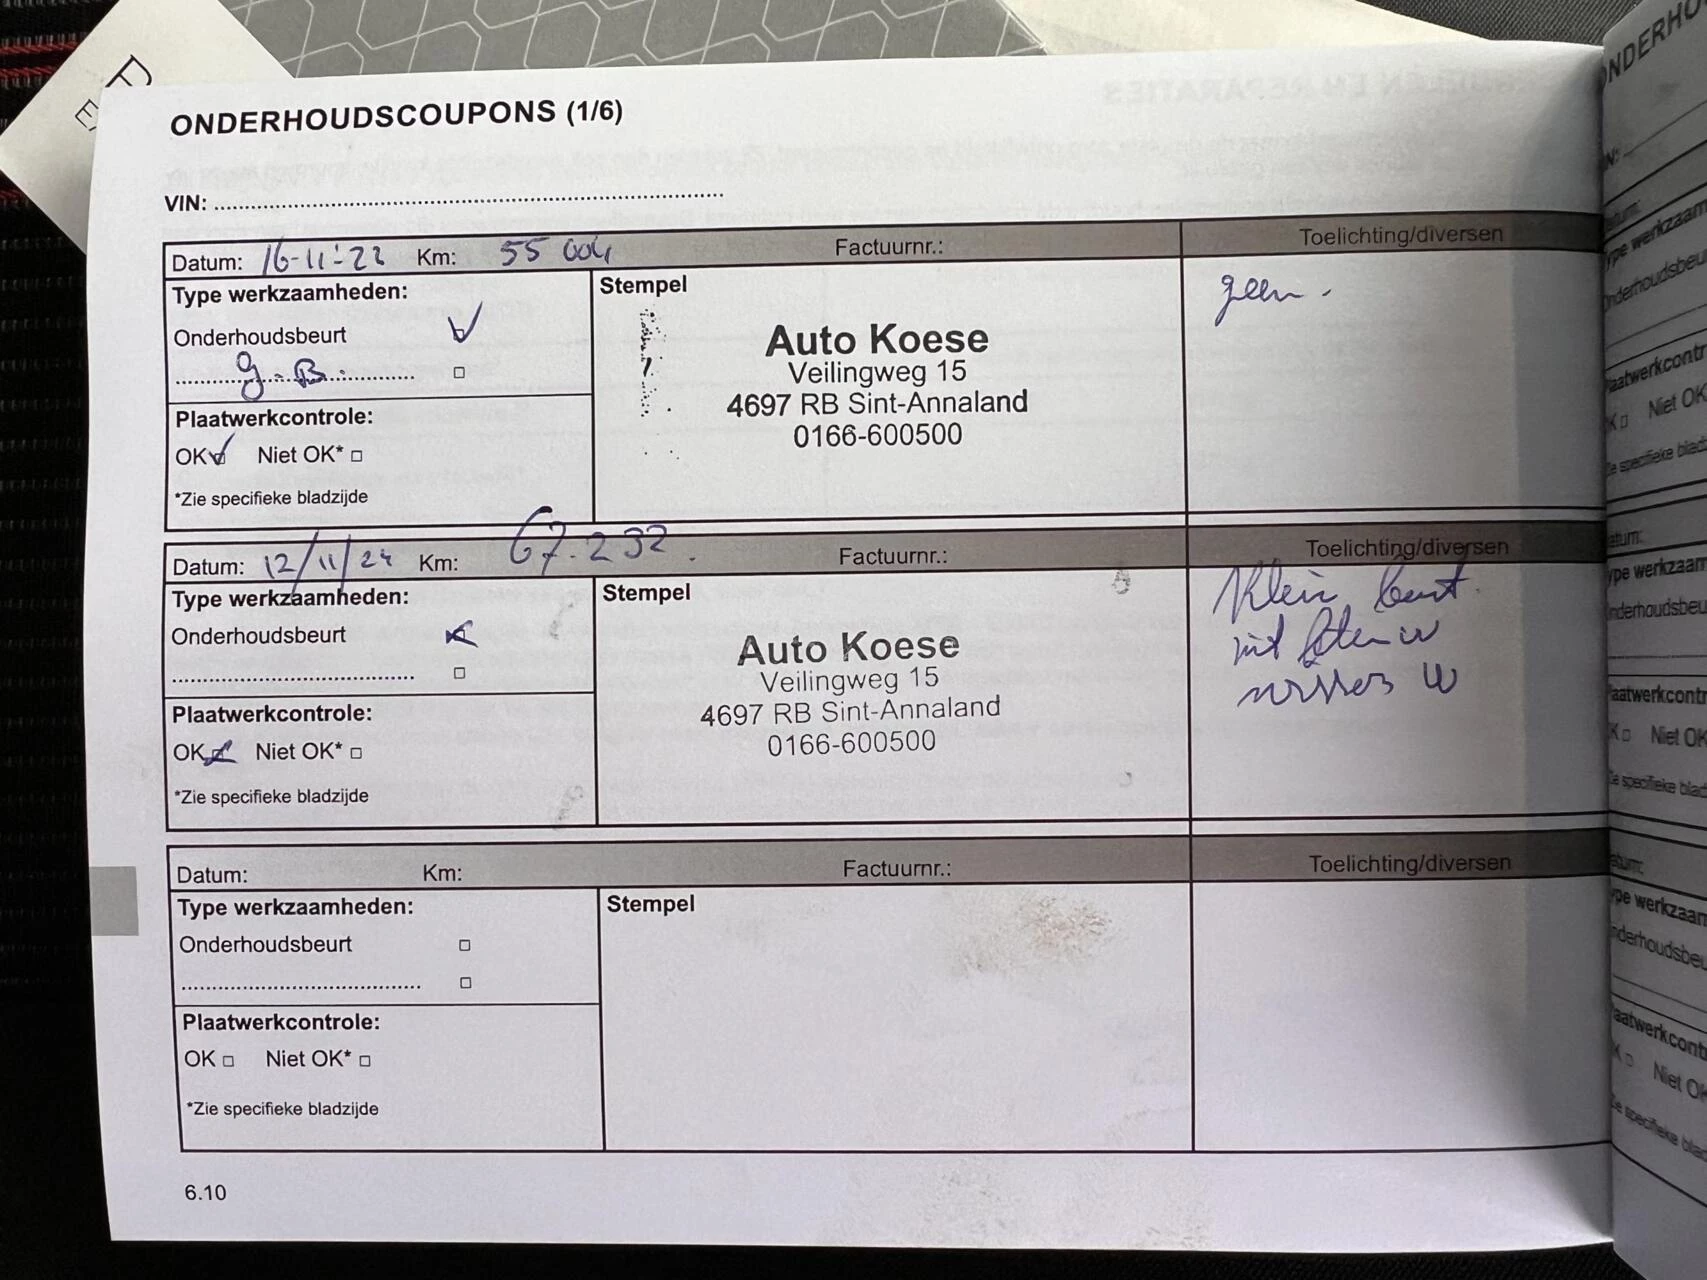 ONDERHOUDSCOUPONS (1/6)
VIN:
Datum: 16-11-22 Km: 55 004 Factuurnr.: Toelichting/diversen
Type werkzaamheden: Stempel
geen.
Onderhoudsbeurt
g.B.
Auto Koese
Veilingweg 15
4697 RB Sint-Annaland
0166-600500
Plaatwerkcontrole:
OK Niet OK*
*Zie specifieke bladzijde
Datum: 12/11/24 Km: 67.232 Factuurnr.: Toelichting/diversen
Type werkzaamheden: Stempel
Klein beurt
Onderhoudsbeurt
Auto Koese
Veilingweg 15
4697 RB Sint-Annaland
0166-600500
Plaatwerkcontrole:
OK Niet OK*
*Zie specifieke bladzijde
Datum: Km: Factuurnr.: Toelichting/diversen
Type werkzaamheden: Stempel
Onderhoudsbeurt
Plaatwerkcontrole:
OK Niet OK*
*Zie specifieke bladzijde
6.10